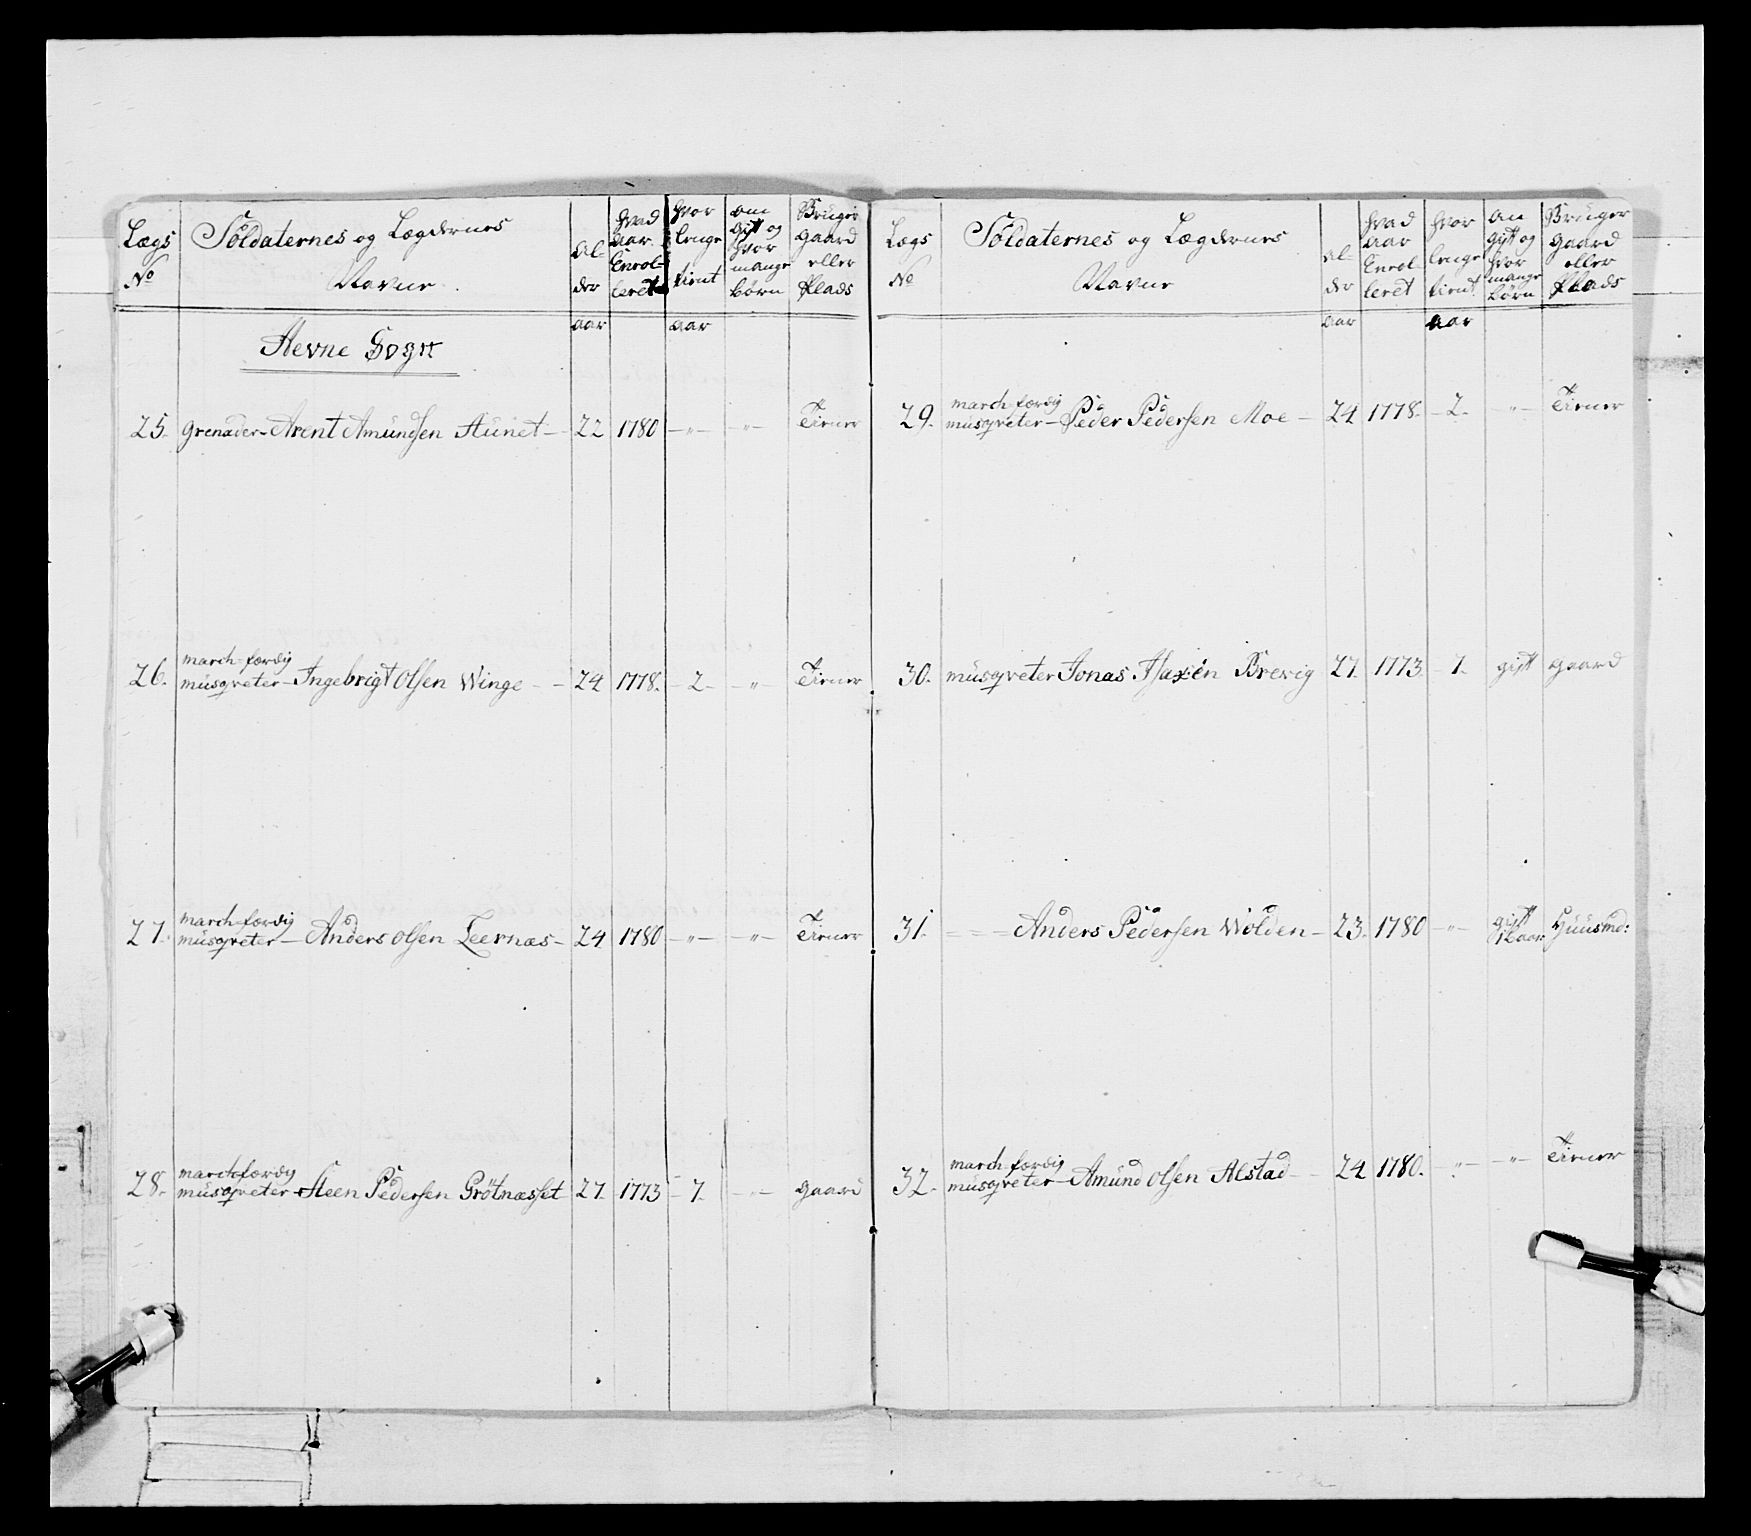 Lægs No | Soldaternes og Lægdernes Navne | Al- der | hvad aar Enrol- leret | hvor lenge tient | om gift og hvor mange børn | Bruger gaard eller Plads
aar | aar
Hevne Sogn
25. grenader - Arent Amundsen Aunet - 22 1780 - „ - - „ - Tiener
26. march færdig
musqveter - Ingebrigt Olsen Winge - - 24 1778. - 2 - - „ - Tiener
27. march færdig
musqveter - Anders Olsen Leernæs - 24 1780 - „ - - „ - Tiener
28. march færdig
musqveter - Steen Pedersen Grötnæsset 27. 1773 - 7. - „ - gaard
Lægs No | Soldaternes og Lægdernes Navne | al- der | hvad aar Enrol- leret | hvor lenge tient | om gift og hvor mange børn | Bruger gaard eller Plads
aar | aar
29. march færdig
musqveter - Peder Pedersen Moe - 24 1778. - 2. - „ - Tiener
30. musqveter Jonas Isaxen Brevig 27. 1773 - 7. gift gaard
31. - - - Anders Pedersen Wolden - 23. 1780 - „ - gift Huusmd:
32. march færdig
musqveter - Amund Olsen Alstad - 24 1780. - „ - - „ - Tiener